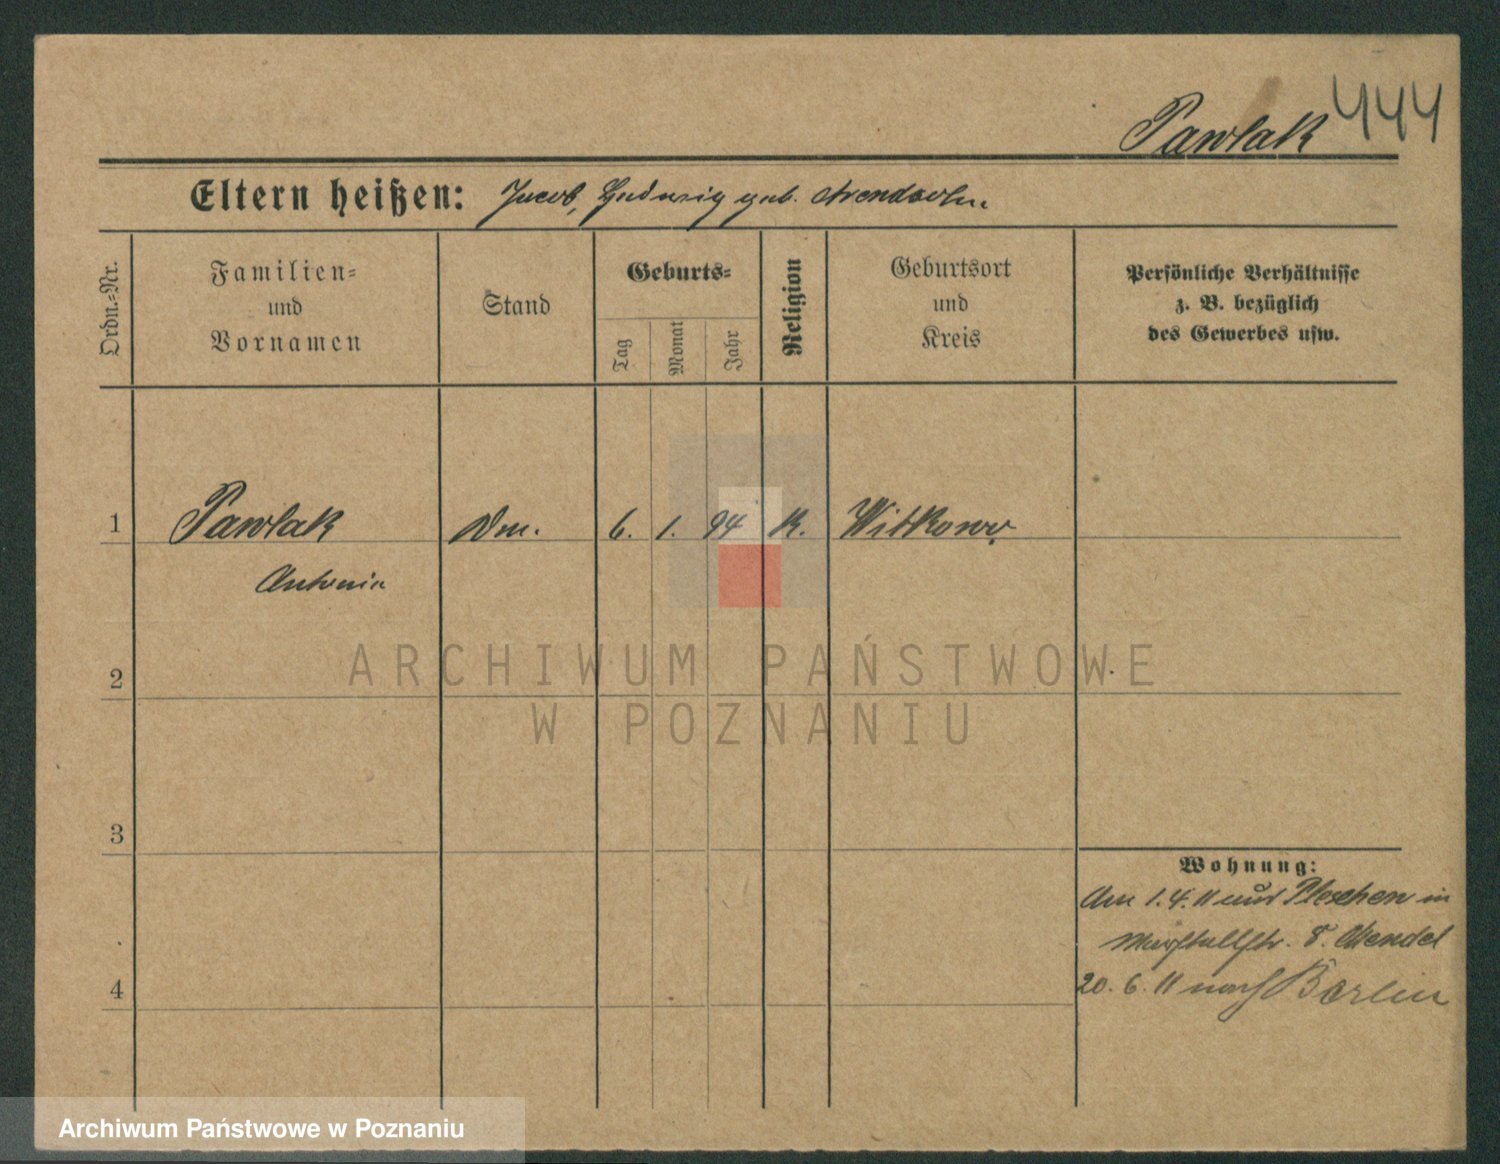 444
Pawlak
Eltern heißen: Jacob, Hedwig geb.
Ordn.=Nr.
Familien=
und
Vornamen
Stand
Geburts=
Tag
Monat
Jahr
Religion
Geburtsort
und
Kreis
Persönliche Verhältnisse
z. B. bezüglich
des Gewerbes usw.
1
Pawlak
6. 1. 94
K.
Witkowo
Antonie
2
ARCHIWUM PAŃSTWOWE
W POZNANIU
3
Wohnung:
Am 1.4.11 aus Pleschen in
Marstallstr. 8. Mendel
4
20. 6. 11 nach Berlin
Archiwum Państwowe w Poznaniu